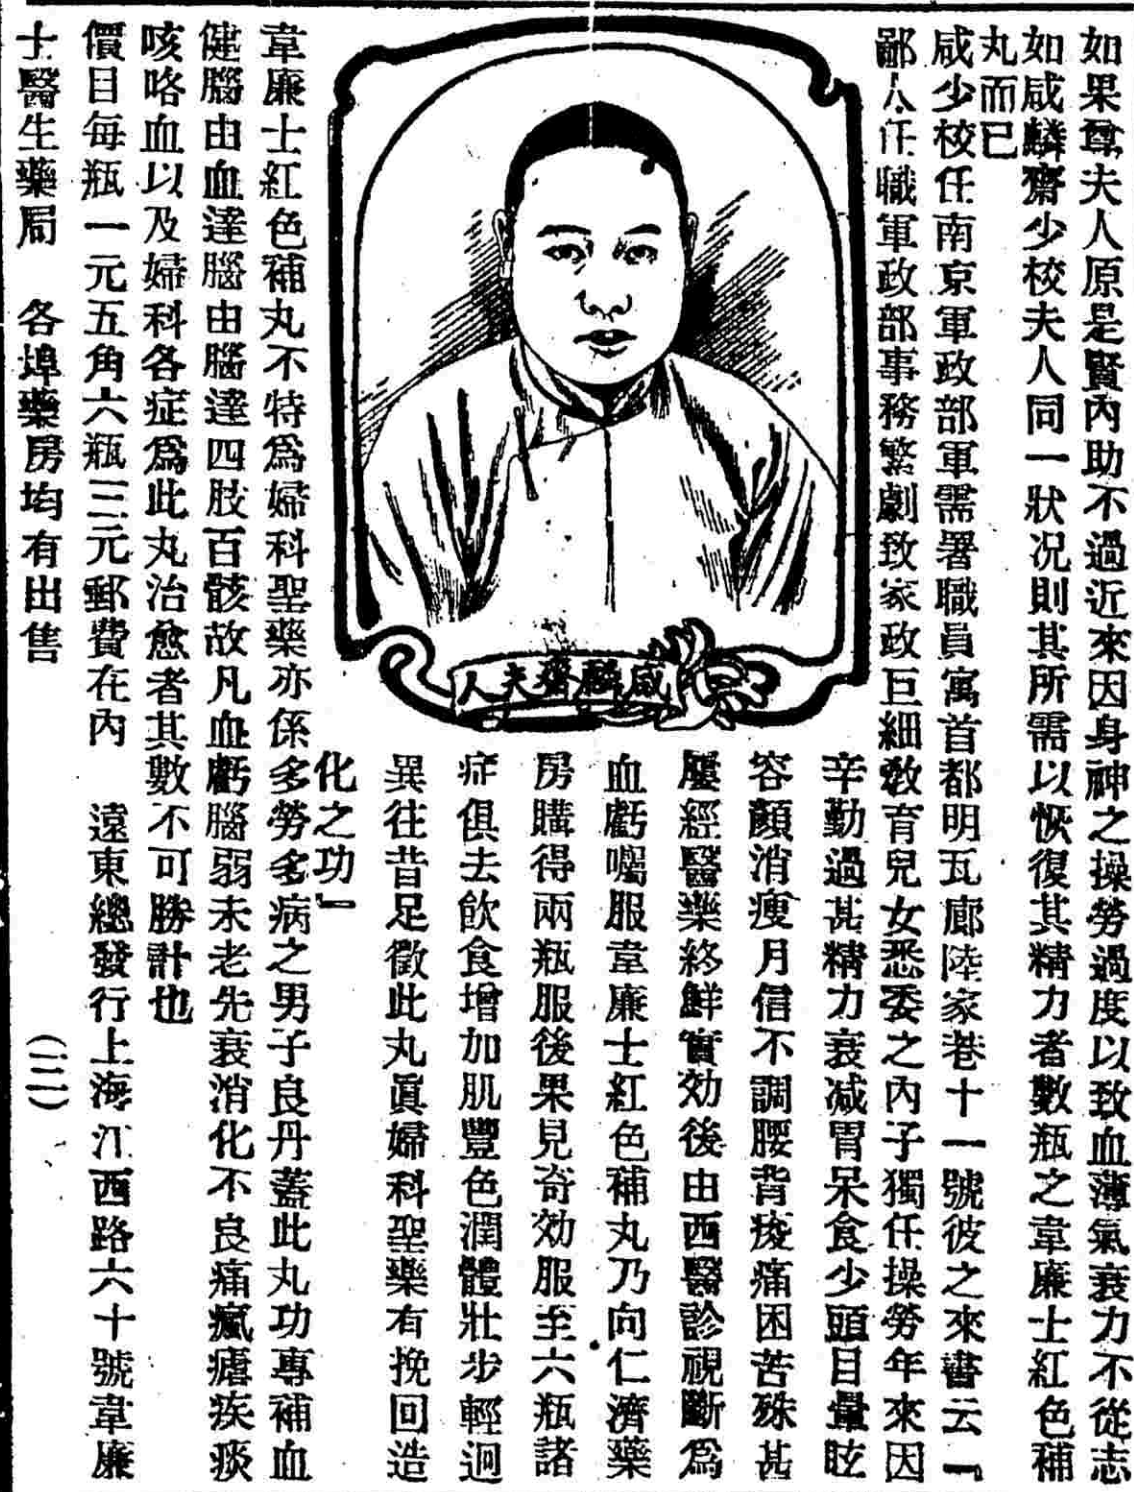 如果尊夫人原是賢內助不過近來因身神之操勞過度以致血薄氣衰力不從志
如咸麟齋少校夫人同一狀況則其所需以恢復其精力者數瓶之韋廉士紅色補
丸而已
咸少校任南京軍政部軍需署職員寓首都明瓦廊陸家巷十一號彼之來書云「
鄙人任職軍政部事務繁劇致家政巨細敎育兒女悉委之內子獨任操勞年來因
辛勤過甚精力衰減胃呆食少頭目暈眩
容顏消瘦月信不調腰背痠痛困苦殊甚
屢經醫藥終鮮實効後由西醫診視斷爲
血虧囑服韋廉士紅色補丸乃向仁濟藥
房購得兩瓶服後果見奇効服至六瓶諸
症俱去飲食增加肌豐色潤體壯步輕迥
異往昔足徵此丸眞婦科聖藥有挽回造
化之功」
咸麟齋夫人
韋廉士紅色補丸不特爲婦科聖藥亦係多勞多病之男子良丹蓋此丸功專補血
健腦由血達腦由腦達四肢百骸故凡血虧腦弱未老先衰消化不良痛瘋瘧疾痰
咳咯血以及婦科各症爲此丸治愈者其數不可勝計也
價目每瓶一元五角六瓶三元郵費在內　遠東總發行上海江西路六十號韋廉
士醫生藥局　各埠藥房均有出售　（三）